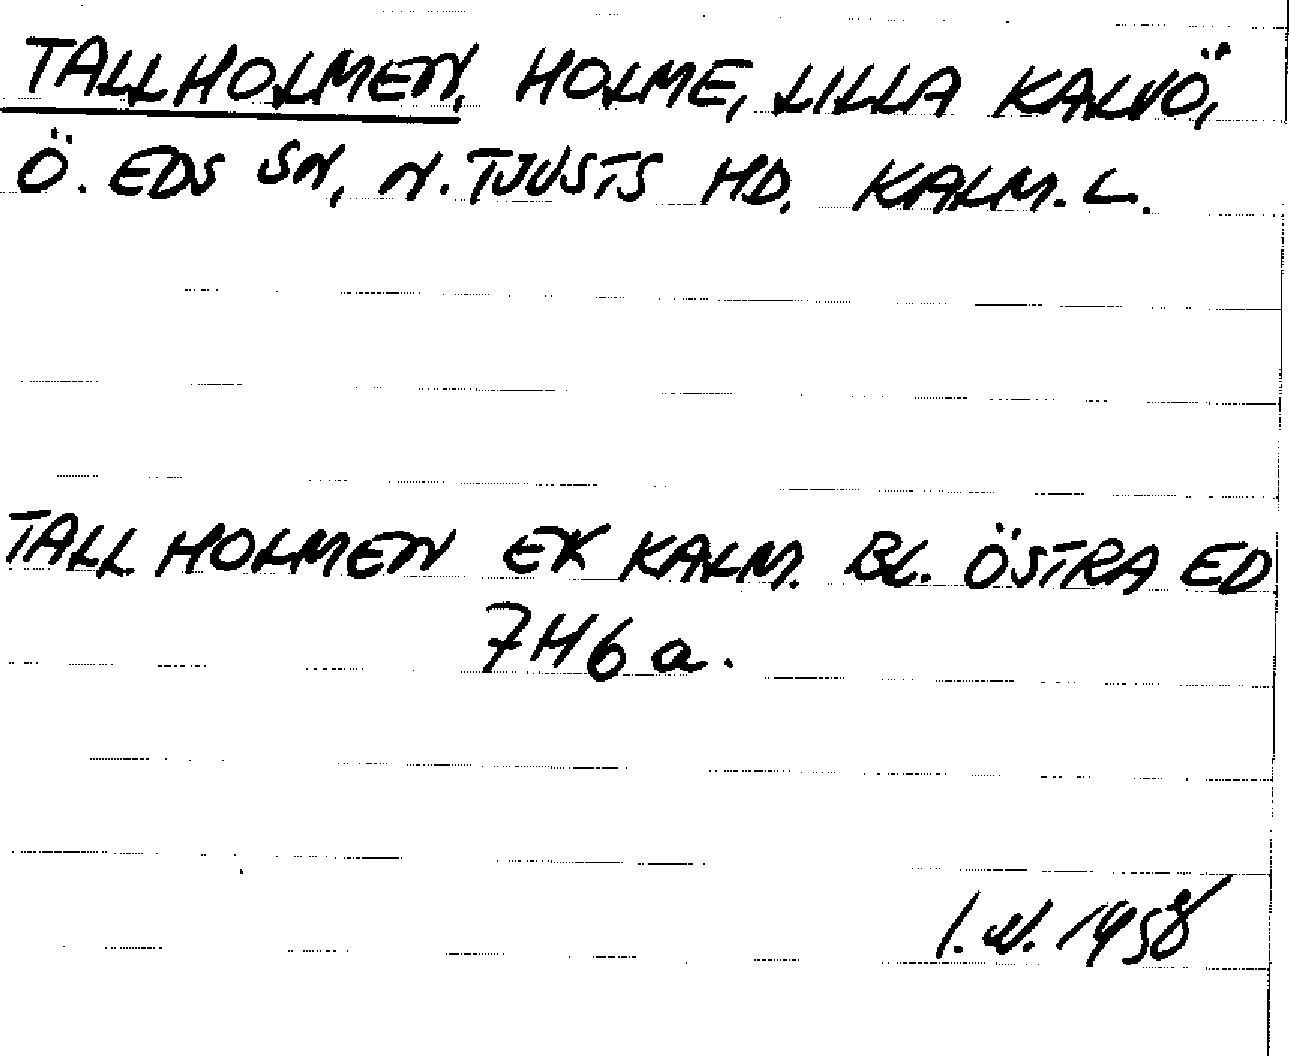 TALLHOLMEN, HOLME, LILLA KALVÖ,
Ö. EDS SN, N. TJUSTS HD, KALM. L.
TALLHOLMEN EK KALM. BL. ÖSTRA ED
7H6a.
I.N. 1958